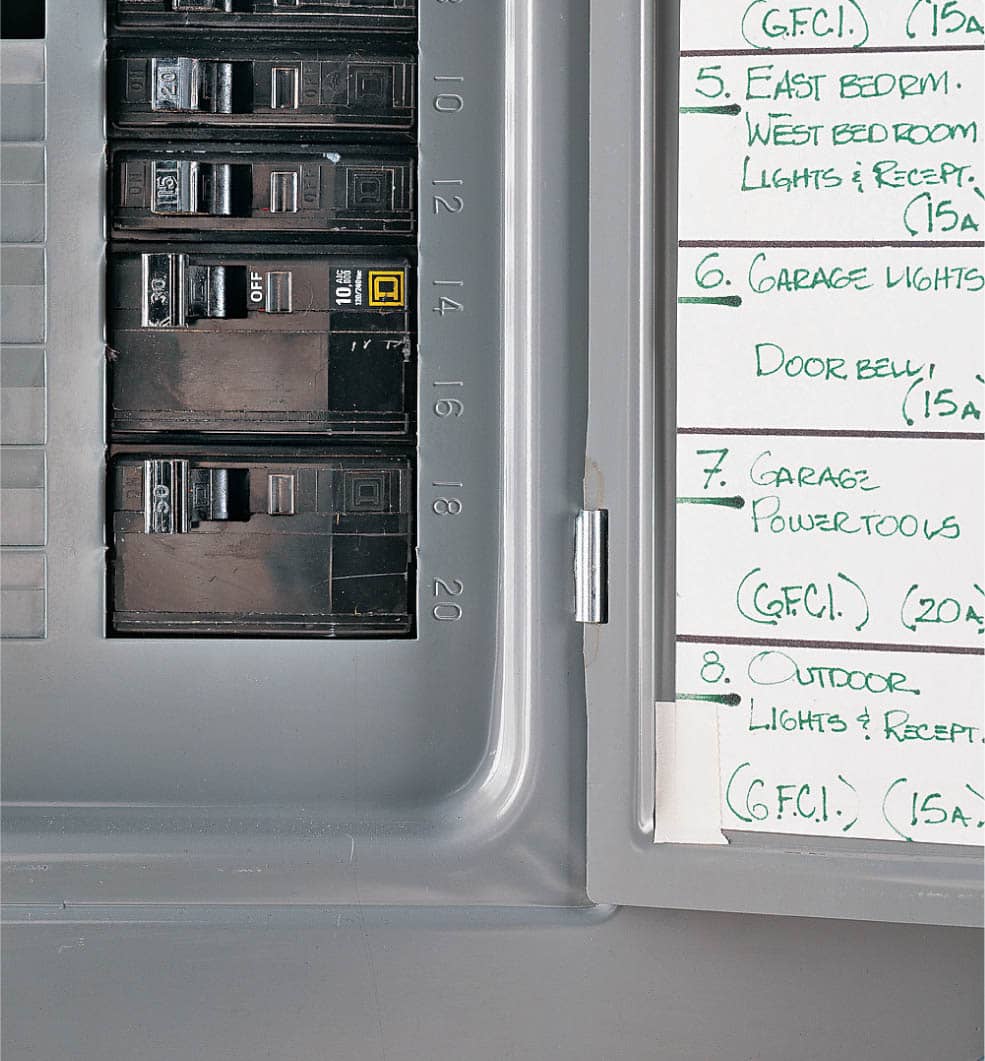 10
20
12
15
OFF
14
30
OFF
10,000
AIC
120/240VAC
16
18
30
20
(G.F.C.I.) (15A
5. EAST BEDRM.
WEST BEDROOM
LIGHTS & RECEPT.
(15A
6. GARAGE LIGHTS
DOOR BELL,
(15A
7. GARAGE
POWERTOOLS
(G.F.C.I.) (20A
8. OUTDOOR
LIGHTS & RECEPT.
(G.F.C.I.) (15A.